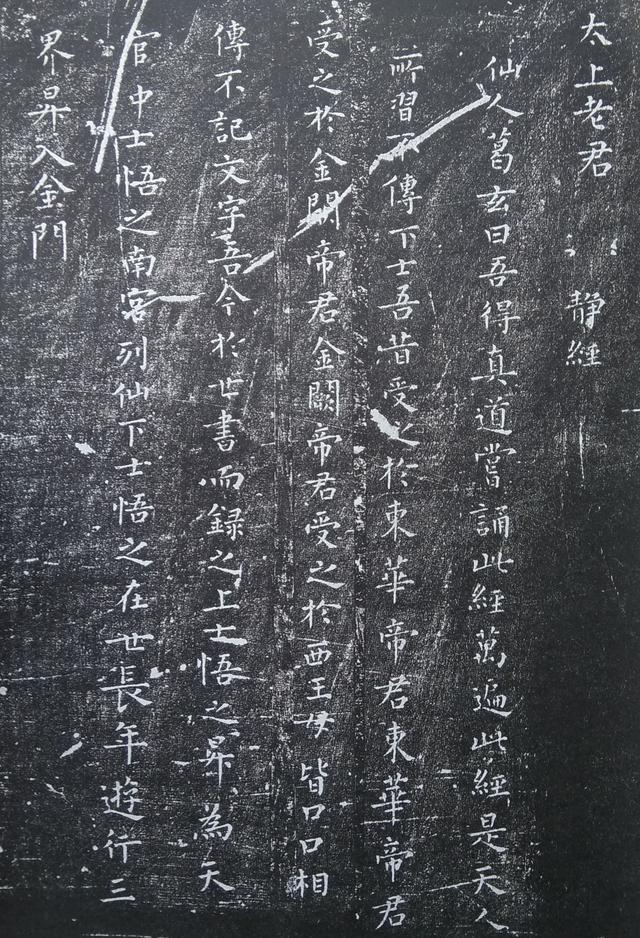 太上老君 静經
仙人葛玄曰吾得真道嘗誦此經萬遍此經是天人
所習不傳下士吾昔受之於東華帝君東華帝君
受之於金闕帝君金闕帝君受之於西王母皆口口相
傳不記文字吾今於世書而録之上士悟之昇為天
官中士悟之南宮列仙下士悟之在世長年遊行三
界昇入金門